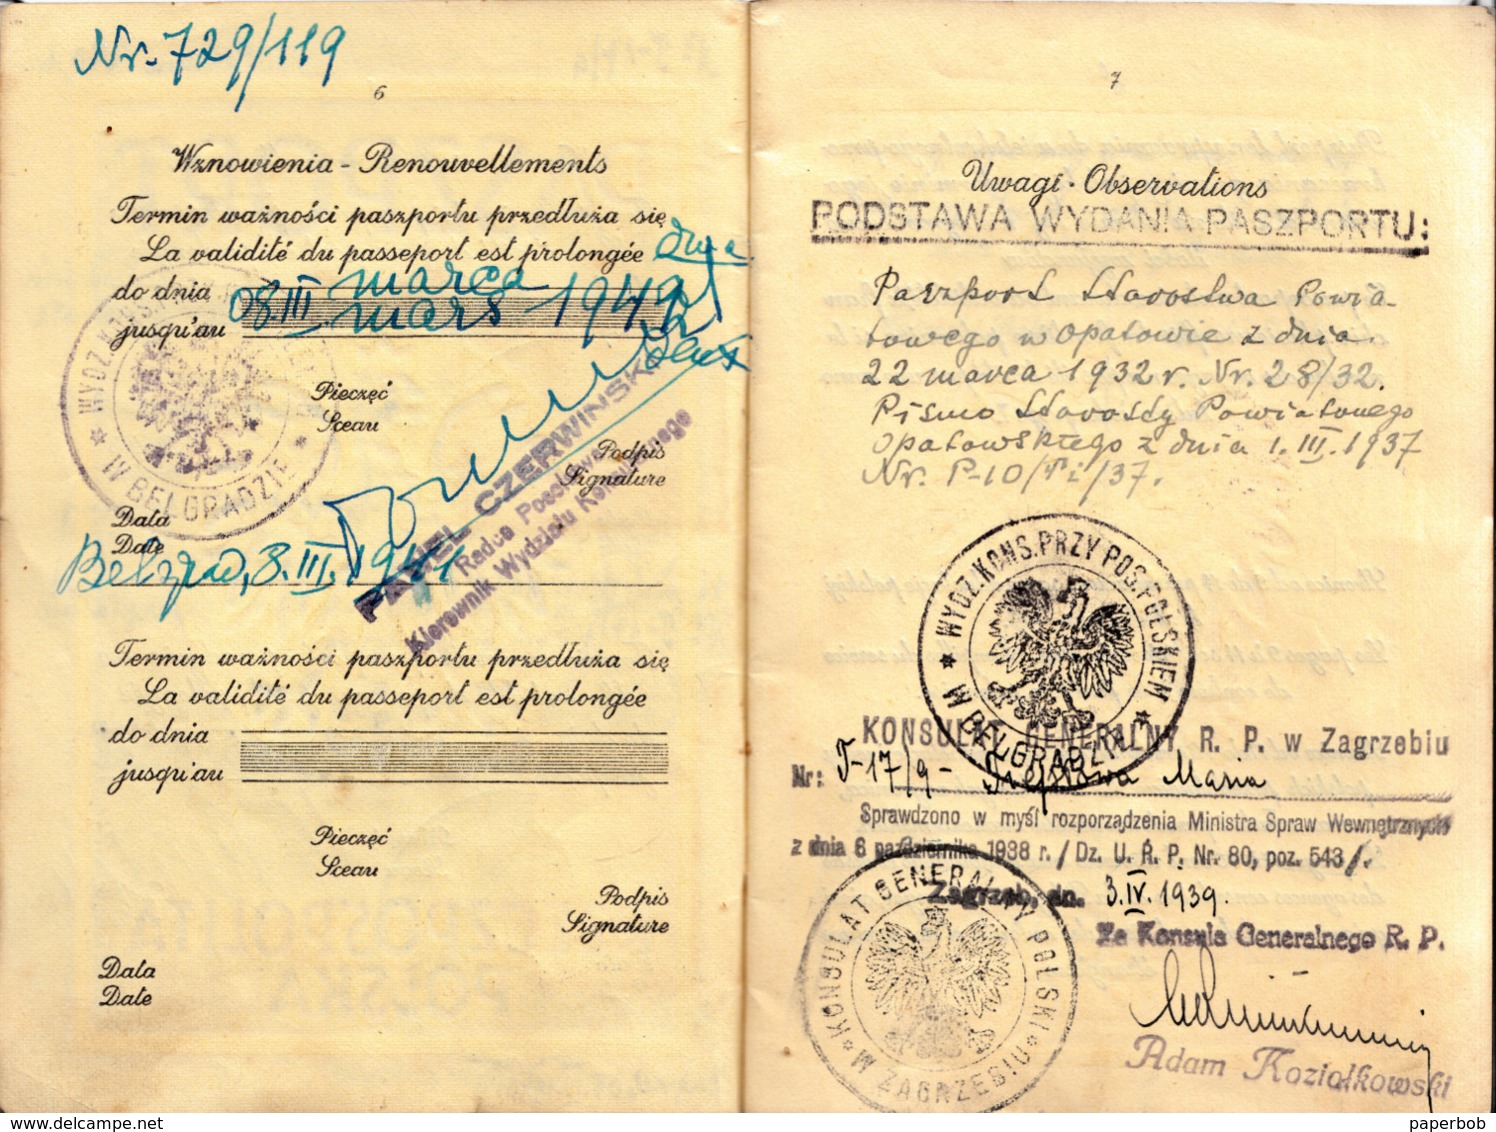 Nr. 729/119
6
Wznowienia - Renouvellements
Termin ważności paszportu przedłuża się
La validité du passeport est prolongée dwa
do dnia 08.III marca 194
jusqu'au mars
WYDZ. KONS. W BELGRADZIE
Pieczęć
Sceau
Podpis
Signature
PAWEŁ CZERWIŃSKI
Radca Poselstwa
Kierownik Wydziału Konsularnego
Data
Date
Belgrad, 8.III.1941
Termin ważności paszportu przedłuża się
La validité du passeport est prolongée
do dnia
jusqu'au
Pieczęć
Sceau
Podpis
Signature
Data
Date
7
Uwagi - Observations
PODSTAWA WYDANIA PASZPORTU:
Paszport Starostwa Powia-
towego w Opatowie z dnia
22 marca 1932 r. Nr. 28/32.
Pismo Starosty Powiatowego
Opatowskiego z dnia 1.III.1937
Nr. P-10/Pi/37.
WYDZ. KONS. PRZY POS. POLSKIEM W BELGRADZIE
KONSULAT GENERALNY R. P. w Zagrzebiu
Nr: T-17/9- Maria
Sprawdzono w myśl rozporządzenia Ministra Spraw Wewnętrznych
z dnia 6 października 1938 r. / Dz. U. R. P. Nr. 80, poz. 543 /.
Zagrzeb, dn. 3.IV.1939.
Za Konsula Generalnego R. P.
KONSULAT GENERALNY POLSKI W ZAGRZEBIU
Adam Koziołkowski
delcampe.net
paperbob